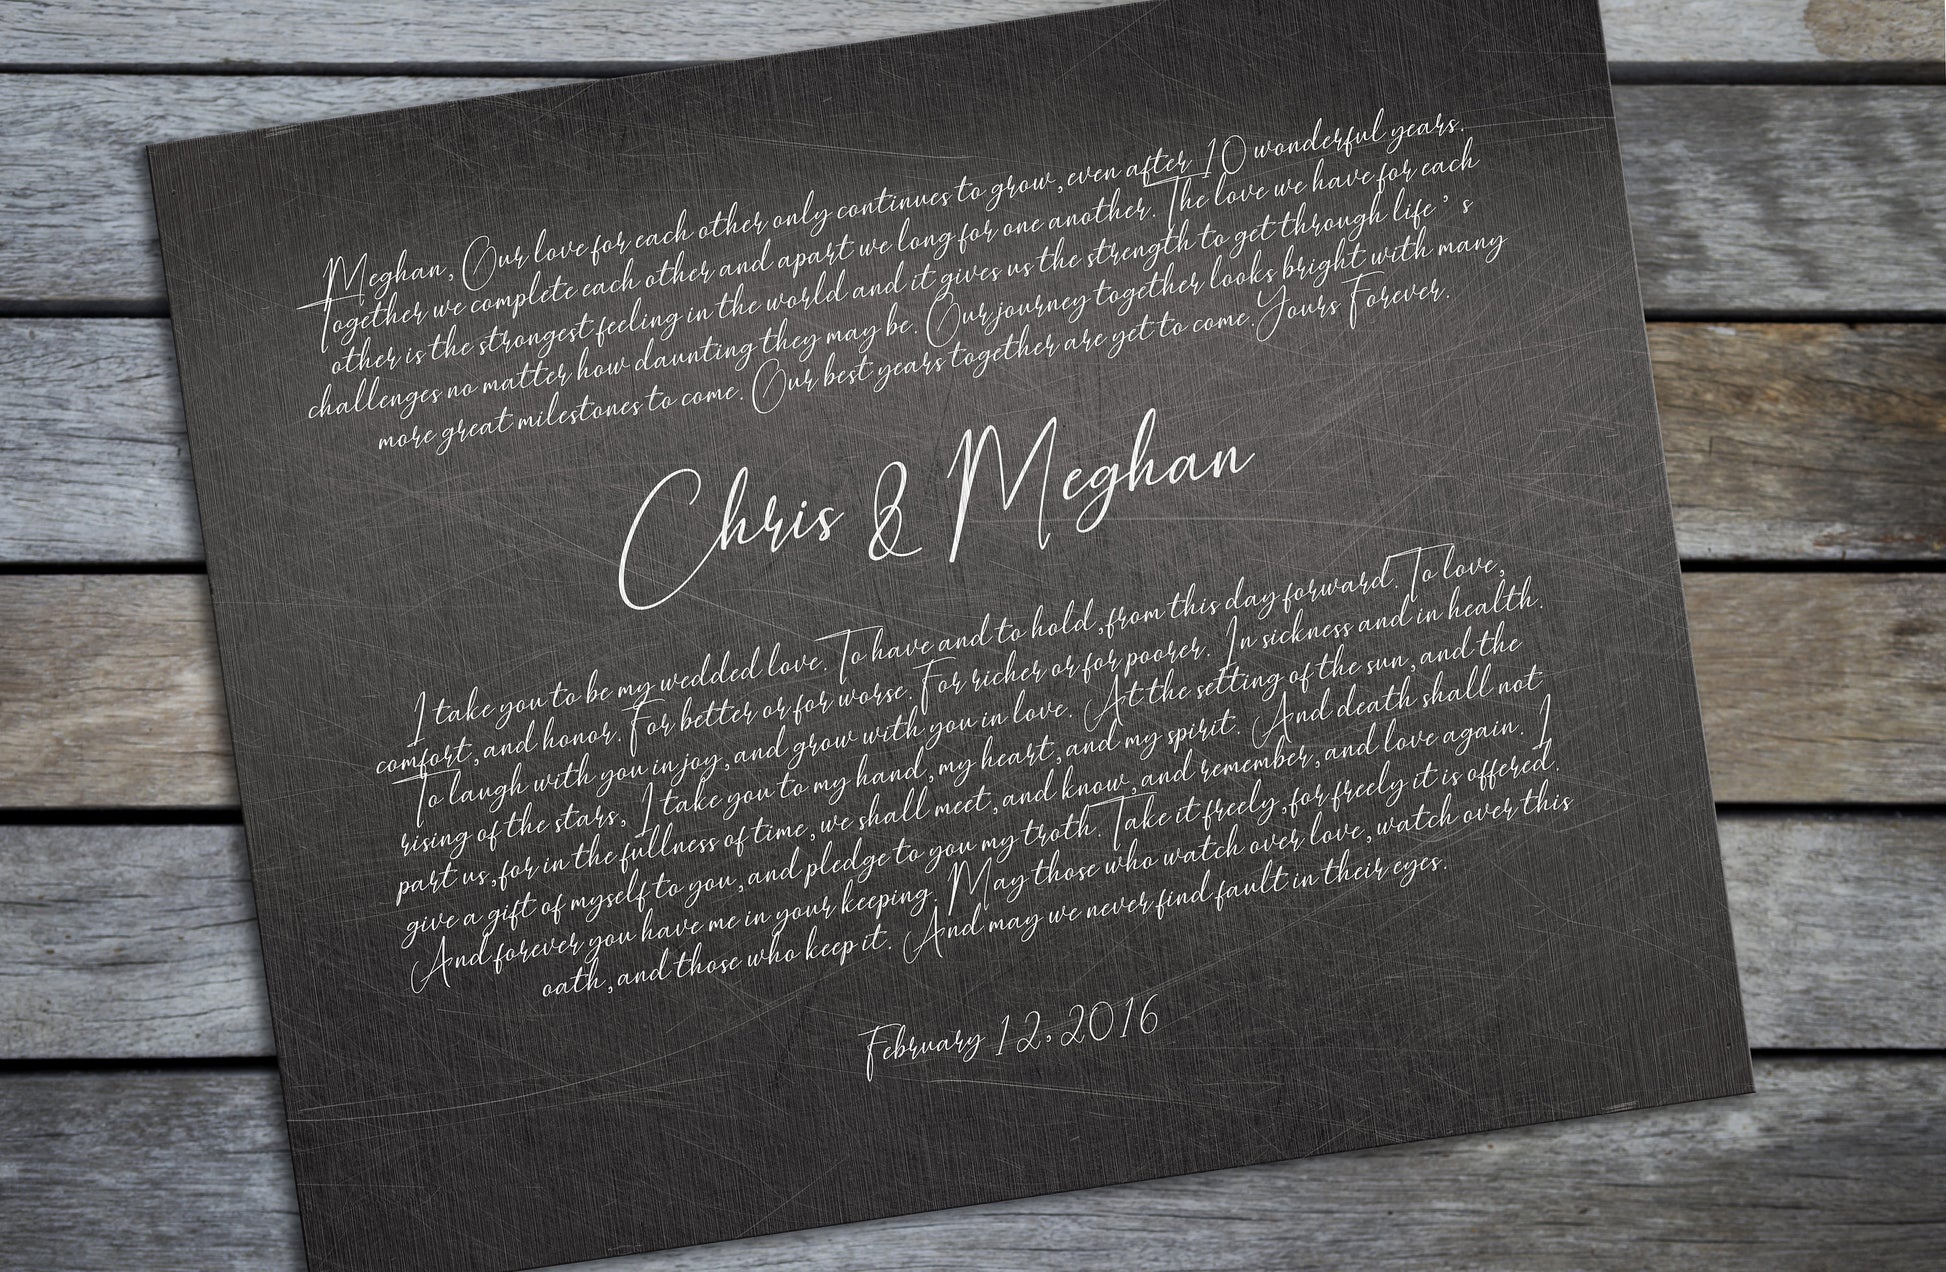 Meghan, Our love for each other only continues to grow, even after 10 wonderful years.
Together we complete each other and apart we long for one another. The love we have for each
other is the strongest feeling in the world and it gives us the strength to get through life's
challenges no matter how daunting they may be. Our journey together looks bright with many
more great milestones to come. Our best years together are yet to come. Yours Forever.
Chris & Meghan
I take you to be my wedded love. To have and to hold, from this day forward. To love,
comfort, and honor. For better or for worse. For richer or for poorer. In sickness and in health.
To laugh with you in joy, and grow with you in love. At the setting of the sun, and the
rising of the stars, I take you to my hand, my heart, and my spirit. And death shall not
part us, for in the fullness of time, we shall meet, and know, and remember, and love again. I
give a gift of myself to you, and pledge to you my troth. Take it freely, for freely it is offered.
And forever you have me in your keeping. May those who watch over love, watch over this
oath, and those who keep it. And may we never find fault in their eyes.
February 12, 2016